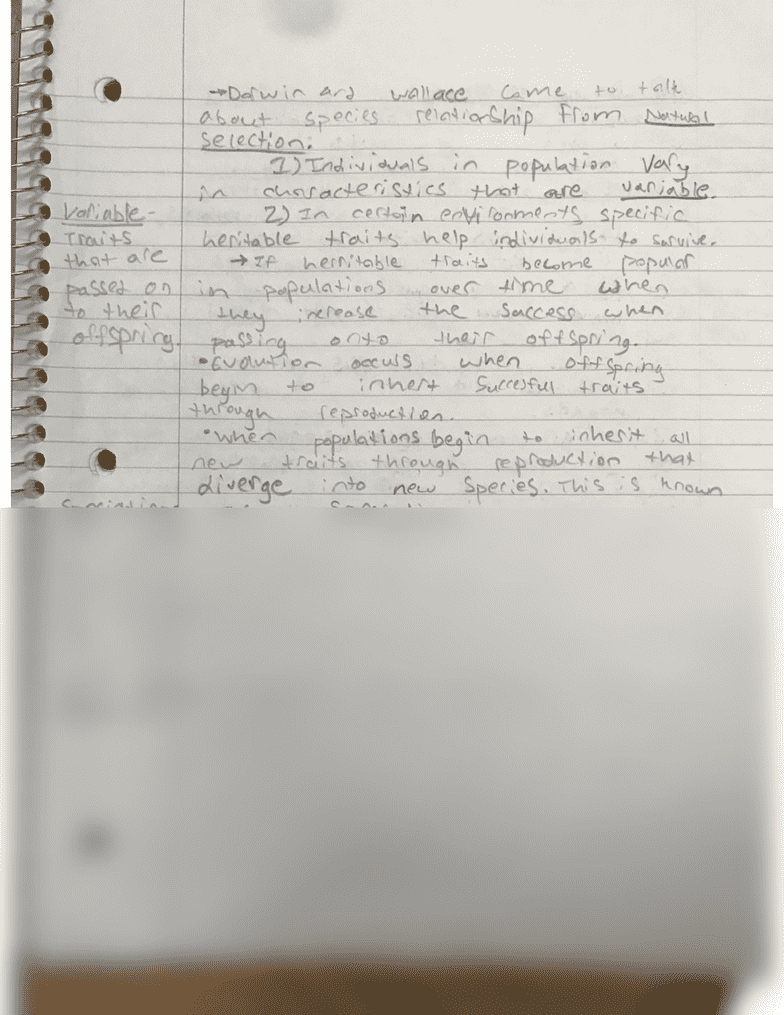 →Darwin and wallace come to talk
about species relationship from Natural
selection:
1) Individuals in population vary
in characteristics that are variable.
Variable-
Traits
that are
passed on
to their
offspring.
2) In certain environments specific
heritable traits help individuals to survive.
→ If herritable traits become popular
in populations over time when
they increase the success when
passing onto their offspring.
•Evolution occuss when offspring
begin to inhert succesful traits
through reproduction.
•when populations begin to inherit all
new traits through reproduction that
diverge into new species. This is known